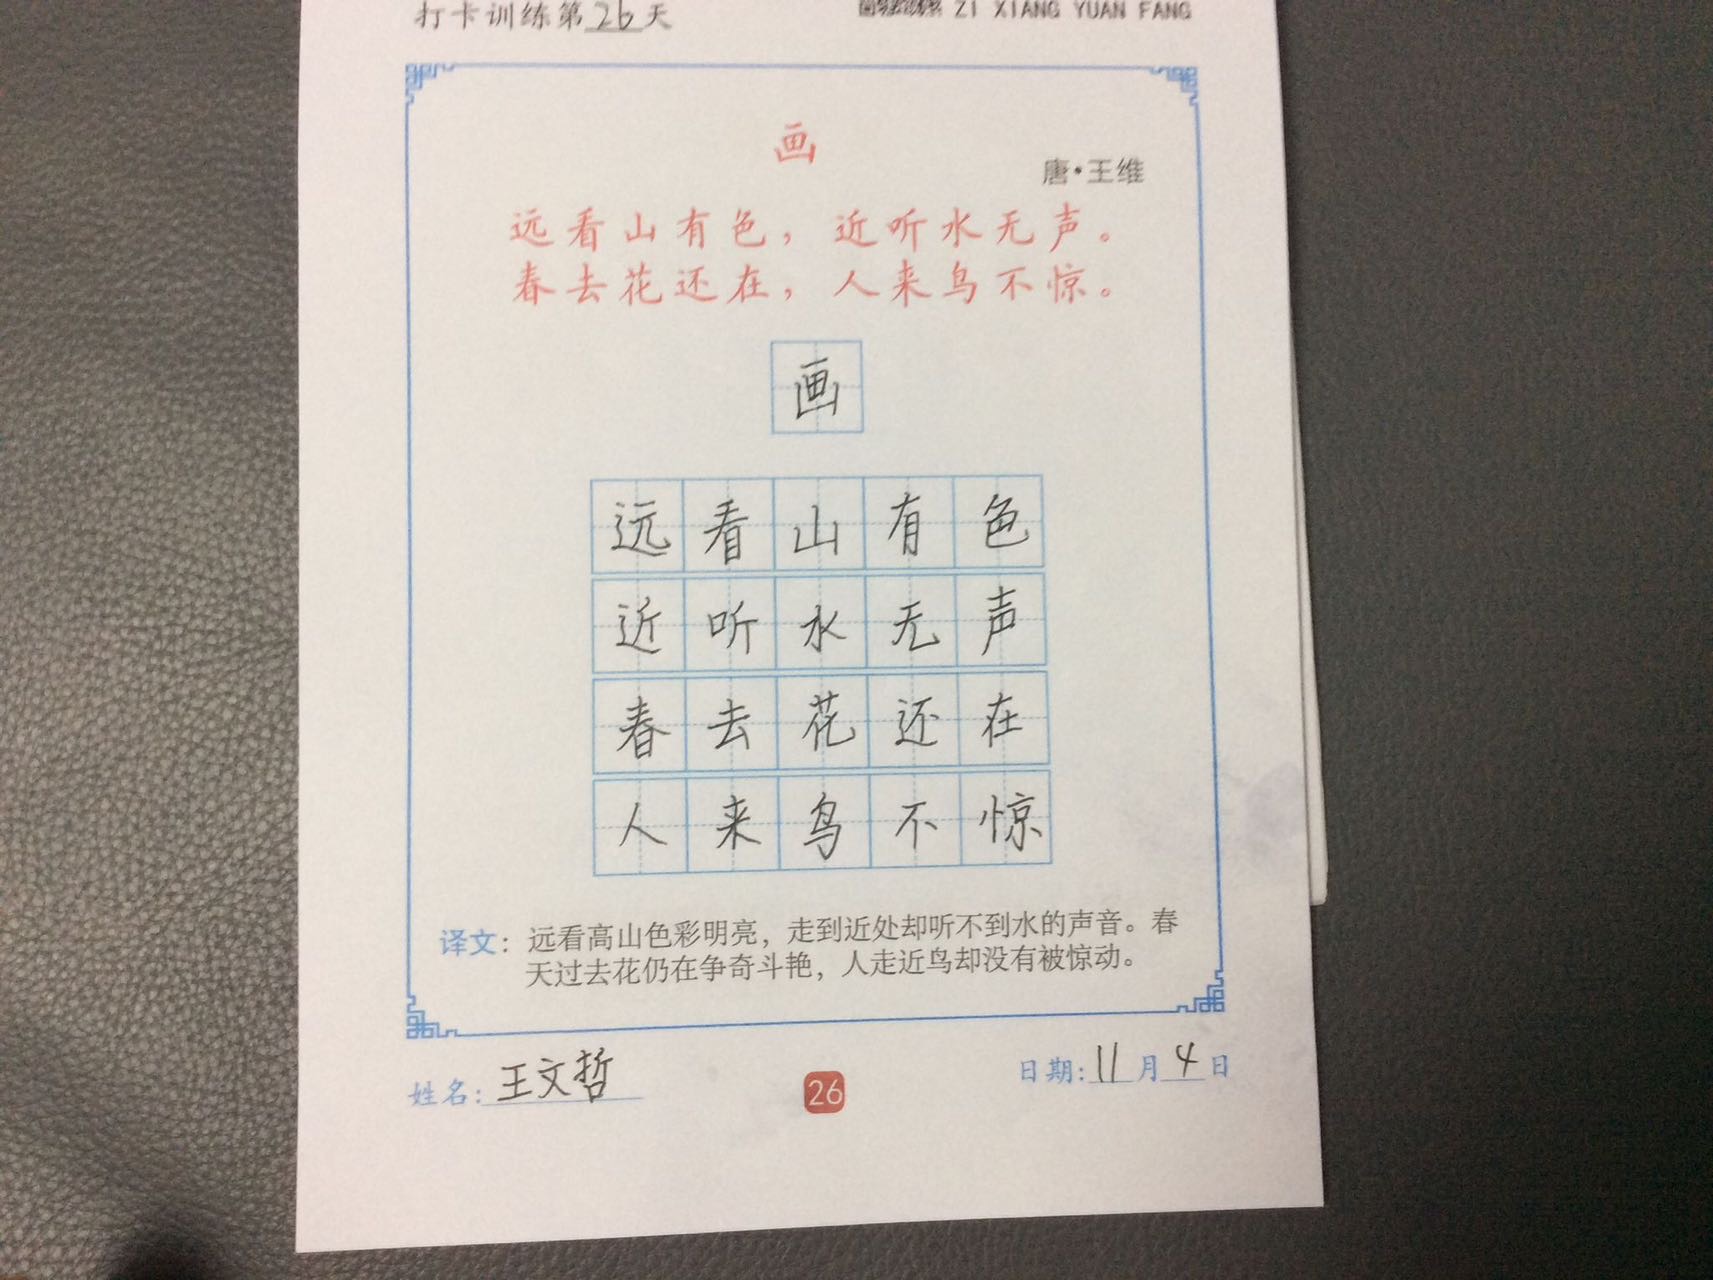 打卡训练第26天
ZI XIANG YUAN FANG
画
唐·王维
远看山有色，近听水无声。
春去花还在，人来鸟不惊。
画
远看山有色
近听水无声
春去花还在
人来鸟不惊
译文：远看高山色彩明亮，走到近处却听不到水的声音。春
天过去花仍在争奇斗艳，人走近鸟却没有被惊动。
姓名：王文哲
26
日期：11月4日